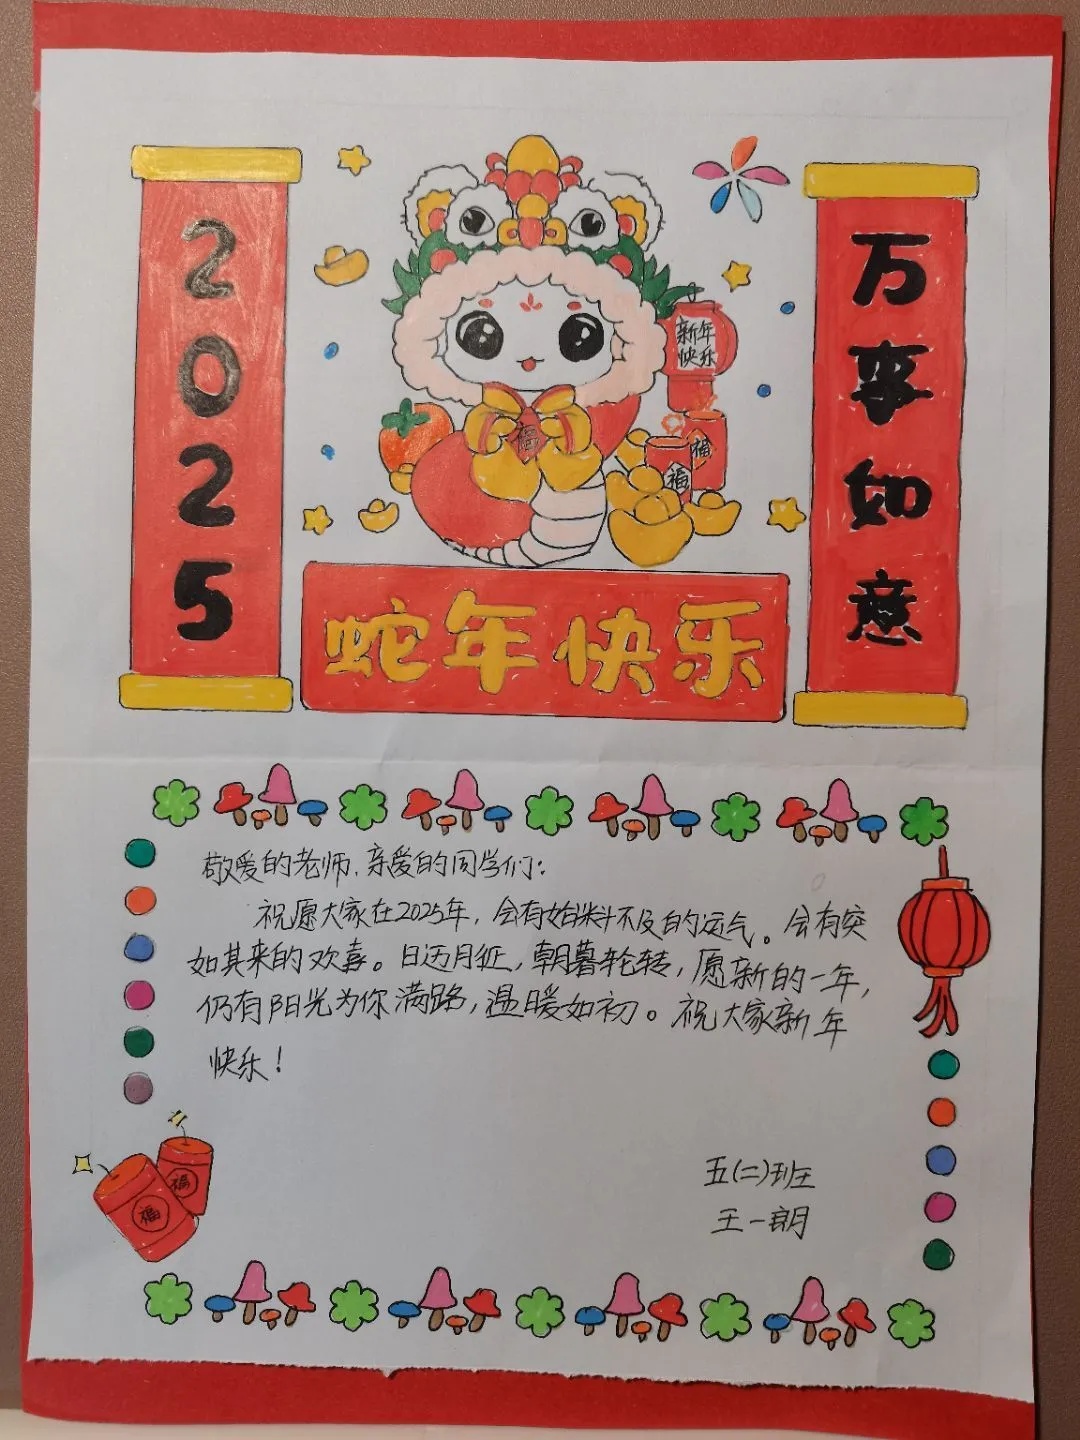 2025
万事如意
新年
快乐
福
福
福
蛇年快乐
敬爱的老师、亲爱的同学们：
祝愿大家在2025年，会有始料不及的运气。会有突
如其来的欢喜。日迈月征，朝暮轮转，愿新的一年，
仍有阳光为你满路，温暖如初。祝大家新年
快乐！
福
福
五(二)班
王一朗